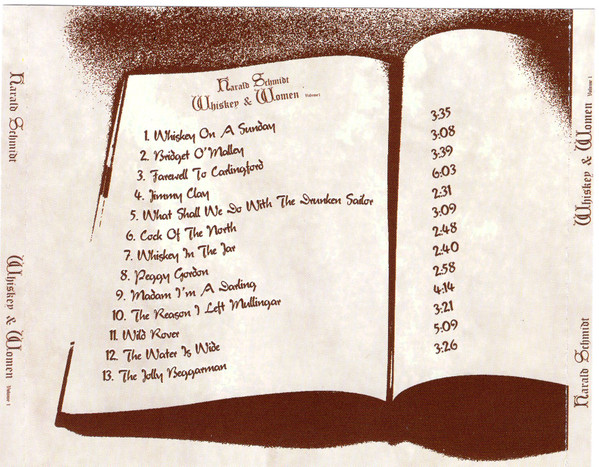 Harald Schmidt
Whiskey & Women Volume 1
1. Whiskey On A Sunday 3:35
2. Bridget O'Malley 3:08
3. Farewell To Carlingford 3:39
4. Jimmy Clay 6:03
5. What Shall We Do With The Drunken Sailor 2:31
6. Cock Of The North 3:09
7. Whiskey In The Jar 2:48
8. Peggy Gordon 2:40
9. Madam I'm A Darling 2:58
10. The Reason I Left Mullingar 4:14
11. Wild Rover 3:21
12. The Water Is Wide 5:09
13. The Jolly Beggarman 3:26
Harald Schmidt Whiskey & Women Volume 1
Harald Schmidt Whiskey & Women Volume 1